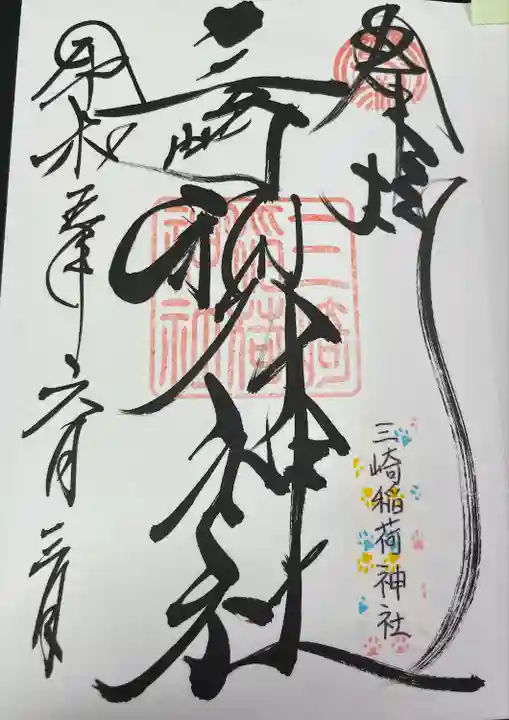 奉拝
三崎稲荷神社
三崎
稲荷
神社
三崎稲荷神社
令和五年六月三日